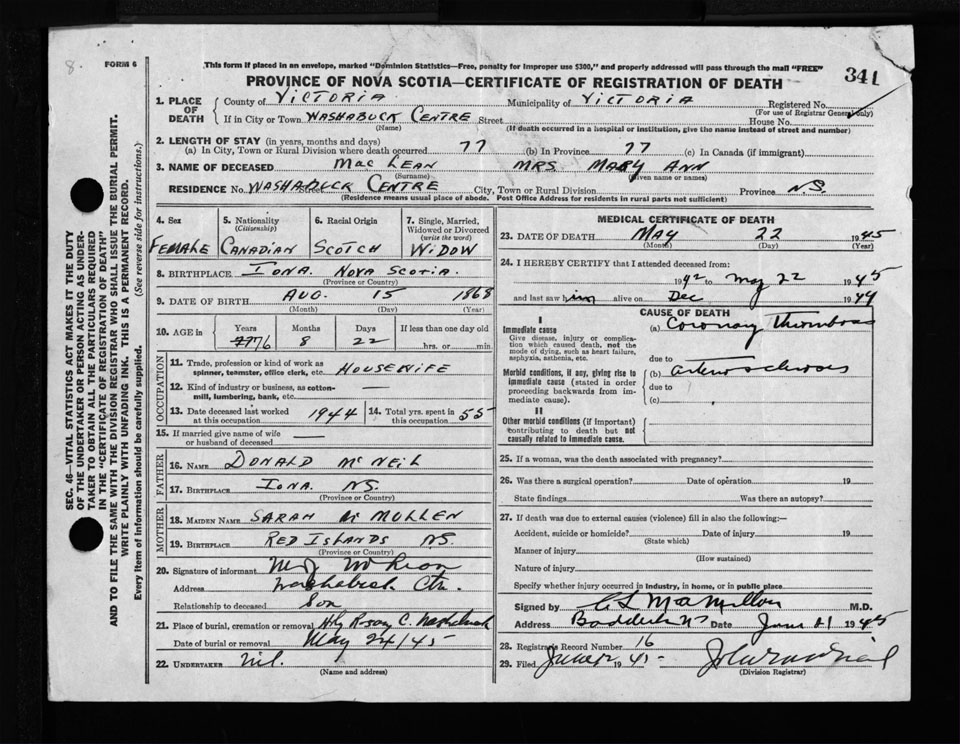 8.
FORM 6
This form if placed in an envelope, marked "Dominion Statistics—Free, penalty for improper use $300," and properly addressed will pass through the mail "FREE"
PROVINCE OF NOVA SCOTIA—CERTIFICATE OF REGISTRATION OF DEATH
341
SEC. 46—VITAL STATISTICS ACT MAKES IT THE DUTY
OF THE UNDERTAKER OR PERSON ACTING AS UNDER-
TAKER TO OBTAIN ALL THE PARTICULARS REQUIRED
IN THE "CERTIFICATE OF REGISTRATION OF DEATH"
AND TO FILE THE SAME WITH THE DIVISION REGISTRAR WHO SHALL ISSUE THE BURIAL PERMIT.
WRITE PLAINLY WITH UNFADING INK. THIS IS A PERMANENT RECORD.
Every item of information should be carefully supplied. (See reverse side for instructions.)
1. PLACE OF DEATH
County of VICTORIA Municipality of VICTORIA Registered No.
(For use of Registrar General only)
If in City or Town WASHABUCK CENTRE Street House No.
(Name) (If death occurred in a hospital or institution, give the name instead of street and number)
2. LENGTH OF STAY (in years, months and days)
(a) In City, Town or Rural Division where death occurred 77 (b) In Province 77 (c) In Canada (if immigrant)
3. NAME OF DECEASED MacLEAN MRS. MARY ANN
(Surname) (Given name or names)
RESIDENCE No. WASHABUCK CENTRE City, Town or Rural Division Province N.S.
(Residence means usual place of abode. Post Office Address for residents in rural parts not sufficient)
4. Sex
FEMALE
5. Nationality
(Citizenship)
CANADIAN
6. Racial Origin
SCOTCH
7. Single, Married,
Widowed or Divorced
(write the word)
WIDOW
8. BIRTHPLACE IONA. NOVA SCOTIA.
(Province or Country)
9. DATE OF BIRTH AUG. 15 1868
(Month) (Day) (Year)
10. AGE in
Years Months Days If less than one day old
76 8 22 hrs. or min.
OCCUPATION
11. Trade, profession or kind of work as
spinner, teamster, office clerk, etc. HOUSEWIFE
12. Kind of industry or business, as cotton-
mill, lumbering, bank, etc.
13. Date deceased last worked
at this occupation 1944
14. Total yrs. spent in
this occupation 55
15. If married give name of wife
or husband of deceased
FATHER
16. NAME DONALD McNEIL
17. BIRTHPLACE IONA N.S.
(Province or Country)
MOTHER
18. MAIDEN NAME SARAH McMULLEN
19. BIRTHPLACE RED ISLANDS N.S.
(Province or Country)
20. Signature of informant
Address Washabuck Ctr.
Relationship to deceased Son
21. Place of burial, cremation or removal Holy Rosary C. Washabuck
Date of burial or removal May 24/45
22. UNDERTAKER Nil.
(Name and address)
MEDICAL CERTIFICATE OF DEATH
23. DATE OF DEATH MAY 22 1945
(Month) (Day) (Year)
24. I HEREBY CERTIFY that I attended deceased from:
1942 to May 22 1945
and last saw him alive on Dec 1944
CAUSE OF DEATH
I
Immediate cause
Give disease, injury or complica-
tion which caused death, not the
mode of dying, such as heart failure,
asphyxia, asthenia, etc.
(a) Coronary Thrombosis
due to
Morbid conditions, if any, giving rise to
immediate cause (stated in order
proceeding backwards from im-
mediate cause).
(b) arteriosclerosis
due to
(c)
II
Other morbid conditions (if important)
contributing to death but not
causally related to immediate cause.
25. If a woman, was the death associated with pregnancy?
26. Was there a surgical operation? Date of operation 19
State findings Was there an autopsy?
27. If death was due to external causes (violence) fill in also the following:—
Accident, suicide or homicide? Date of injury 19
(State which)
Manner of injury
(How sustained)
Nature of injury
Specify whether injury occurred in industry, in home, or in public place.
Signed by C L MacMillan M.D.
Address Baddeck NS Date June 21 1945
28. Registrar's Record Number 16
29. Filed June 19 45
(Division Registrar)